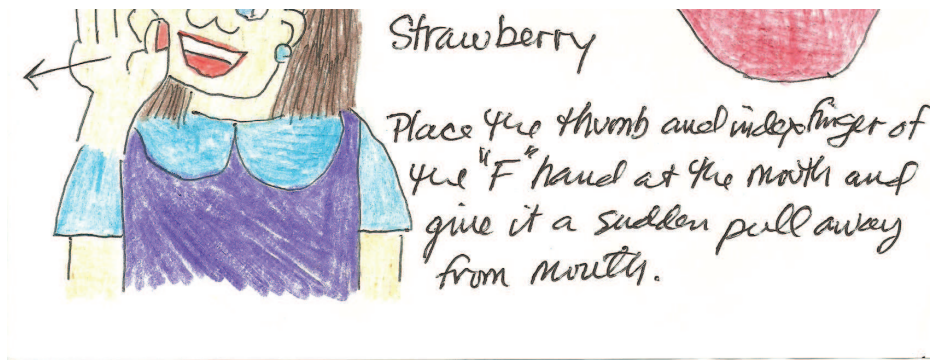 Strawberry
Place the thumb and index finger of
the "F" hand at the mouth and
give it a sudden pull away
from mouth.